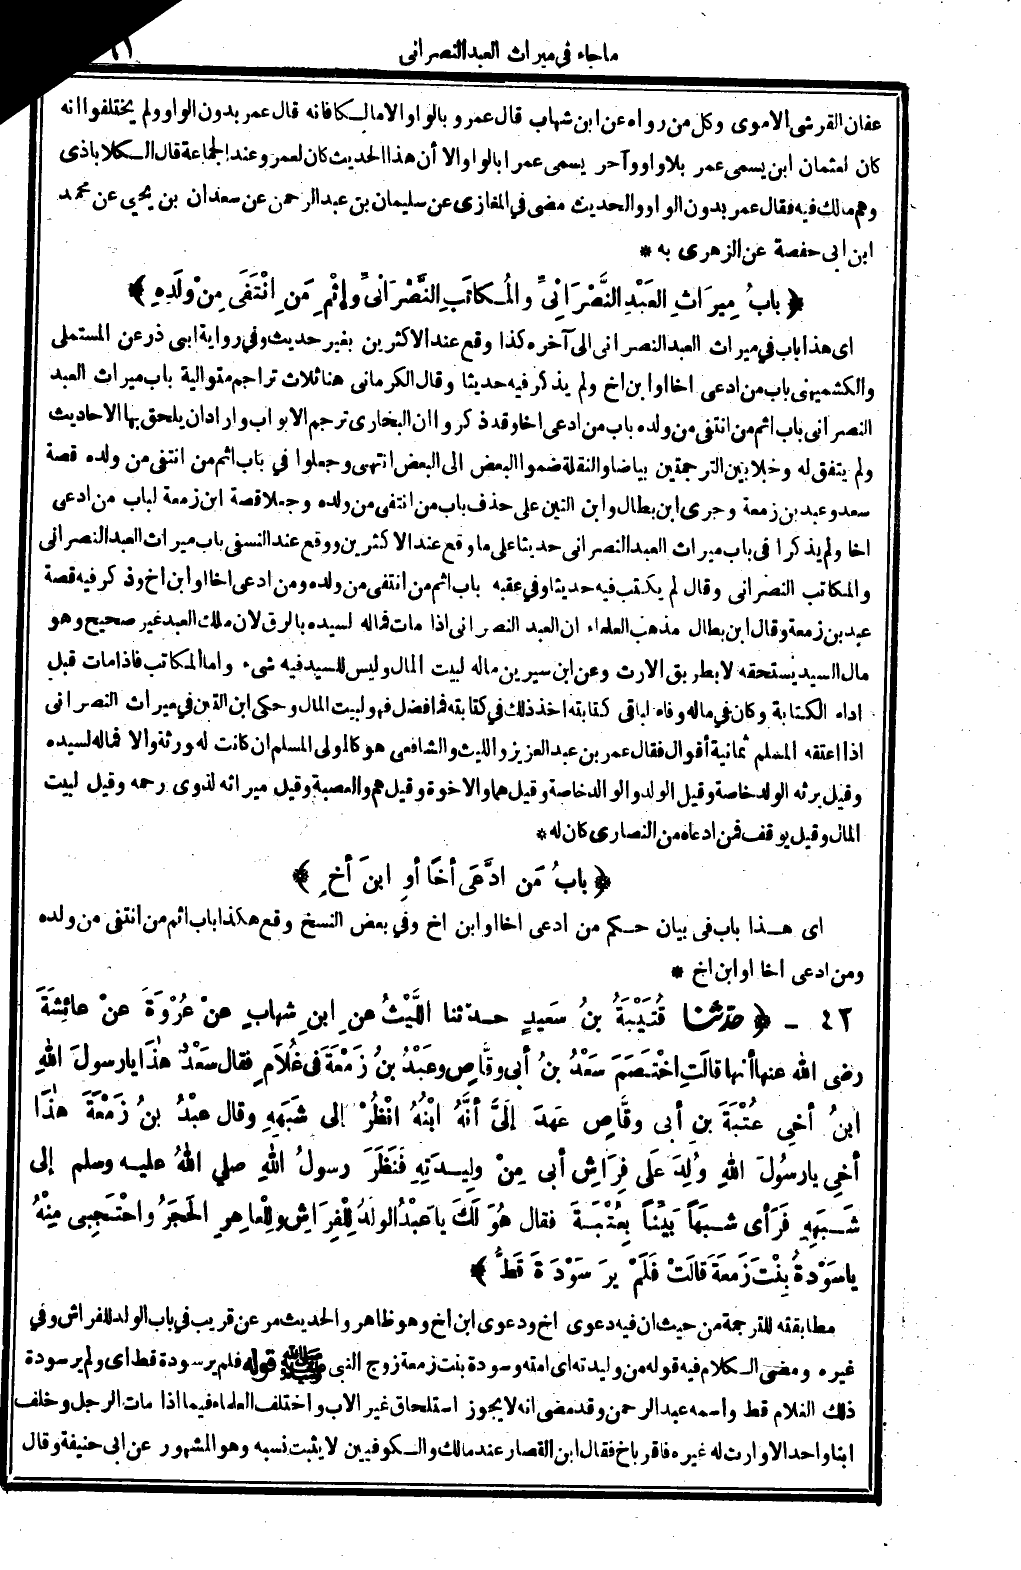 ماجاء في ميراث العبد النصراني
عفان القرشى الاموى وكل من رواه عن ابن شهاب قال عمرو بالواو الا مالكا فانه قال عمر بدون الواو ولم يختلفوا انه
كان لعثمان ابن يسمى عمر بلا واو وآخر يسمى عمرا بالواو الا أن هذا الحديث كان لعمرو عند الجماعة قال الكلاباذى
وهم مالك فيه فقال عمر بدون الواو والحديث مضى في المغازى عن سليمان بن عبد الرحمن عن سعدان بن يحيى عن محمد
ابن ابى حفصة عن الزهرى به *
﴿ بابُ مِيرَاثِ العَبْدِ النَّصْرَانِيِّ والمُكاتَبِ النَّصْرَانِيِّ وإثْمِ مَنِ انْتَفَى مِنْ ولَدِهِ ﴾
اى هذا باب في ميراث العبد النصرانى الى آخره كذا وقع عند الاكثرين بغير حديث وفي رواية ابى ذر عن المستملى
والكشميهنى باب من ادعى اخا او ابن اخ ولم يذكر فيه حديثا وقال الكرمانى هنا ثلاث تراجم متوالية باب ميراث العبد
النصرانى باب اثم من انتفى من ولده باب من ادعى اخا وقد ذكروا ان البخارى ترجم الابواب واراد ان يلحق بها الاحاديث
ولم يتفق له وخلا بين الترجمتين بياضا والنقلة ضموا البعض الى البعض انتهى وجعلوا في باب اثم من انتفى من ولده قصة
سعد وعبد بن زمعة وجرى ابن بطال وابن التين على حذف باب من انتفى من ولده وجعلا قصة ابن زمعة لباب من ادعى
اخا ولم يذكرا فى باب ميراث العبد النصرانى حديثا على ما وقع عند الاكثرين ووقع عند النسفى باب ميراث العبد النصرانى
والمكاتب النصرانى وقال لم يكتب فيه حديثا وفي عقبه باب اثم من انتفى من ولده ومن ادعى اخا او ابن اخ وذكر فيه قصة
عبد بن زمعة وقال ابن بطال مذهب العلماء ان العبد النصرانى اذا مات فماله لسيده بالرق لان ملك العبد غير صحيح وهو
مال السيد يستحقه لا بطريق الارث وعن ابن سيرين ماله لبيت المال وليس للسيد فيه شىء واما المكاتب فاذا مات قبل
اداء الكتابة وكان في ماله وفاء لباقى كتابته اخذ ذلك في كتابته فما فضل فهو لبيت المال وحكى ابن التين في ميراث النصرانى
اذا اعتقه المسلم ثمانية أقوال فقال عمر بن عبد العزيز والليث والشافعى هو كالمولى المسلم ان كانت له ورثة والا فماله لسيده
وقيل يرثه الولد خاصة وقيل الولد والوالد خاصة وقيل هما والاخوة وقيل هم والعصبة وقيل ميراثه لذوى رحمه وقيل لبيت
المال وقيل يوقف فمن ادعاه من النصارى كان له *
﴿ بابُ مَن ادَّعَى أخًا أوِ ابنَ أخٍ ﴾
اى هذا باب فى بيان حكم من ادعى اخا او ابن اخ وفي بعض النسخ وقع هكذا باب اثم من انتفى من ولده
ومن ادعى اخا او ابن اخ *
٤٢ - ﴿ حدثنا قُتَيْبَةُ بنُ سَعِيدٍ حدثنا اللَّيْثُ عنِ ابنِ شِهابٍ عنْ عُرْوَةَ عنْ عائِشَةَ
رضى الله عنها أنها قالَتِ اخْتَصَمَ سَعْدُ بنُ أبى وقَّاصٍ وعَبْدُ بنُ زَمْعَةَ فى غُلَامٍ فقال سَعْدٌ هٰذَا يا رسولَ اللهِ
ابنُ أخى عُتْبَةَ بنِ أبى وقَّاصٍ عهِدَ إلَىَّ أنَّهُ ابْنُهُ انْظُرْ إلى شَبَهِهِ وقال عبْدُ بنُ زَمْعَةَ هذَا
أخِى يا رسُولَ اللهِ وُلِدَ عَلى فِرَاشِ أبى مِنْ ولِيدَتِهِ فَنَظَرَ رسولُ اللهِ صلي اللهُ عليه وسلم إلى
شَبَهِهِ فَرَأى شَبَهًا بَيِّنًا بِعُتْبَةَ فقال هُوَ لَكَ يا عَبْدُ الولَدُ لِلْفِرَاشِ ولِلْعاهِرِ الحَجَرُ واحْتَجِبِى مِنْهُ
يا سَوْدَةُ بِنْتَ زَمعَةَ قالَتْ فَلَمْ يرَ سَوْدَةَ قَطُّ ﴾
مطابقته للترجمة من حيث ان فيه دعوى اخ ودعوى ابن اخ وهو ظاهر والحديث مر عن قريب في باب الولد للفراش وفي
غيره ومضى الكلام فيه قوله من وليدته اى امته وسودة بنت زمعة زوج النبى صلى الله عليه وسلم قوله فلم ير سودة قط اى ولم ير سودة
ذلك الغلام قط واسمه عبد الرحمن وقد مضى انه لا يجوز استلحاق غير الاب واختلف العلماء فيما اذا مات الرجل وخلف
ابنا واحدا لا وارث له غيره فاقر باخ فقال ابن القصار عند مالك والكوفيين لا يثبت نسبه وهو المشهور عن ابى حنيفة وقال